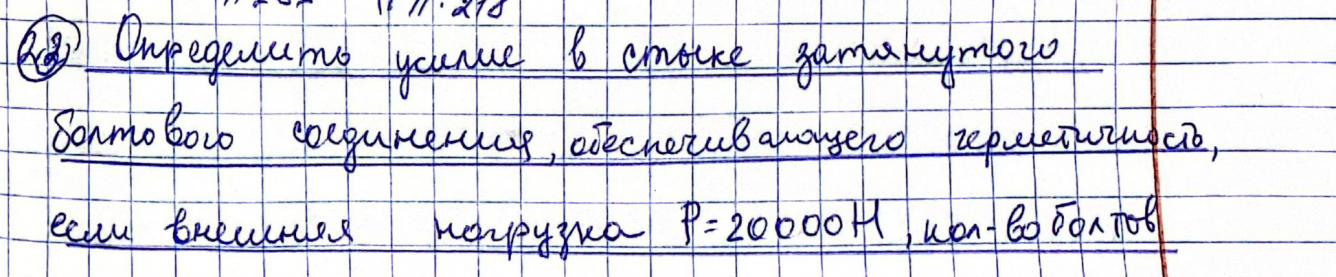 22) Определить усилие в стыке затянутого
болтового соединения, обеспечивающего герметичность,
если внешняя нагрузка P=20000Н, кол-во болтов